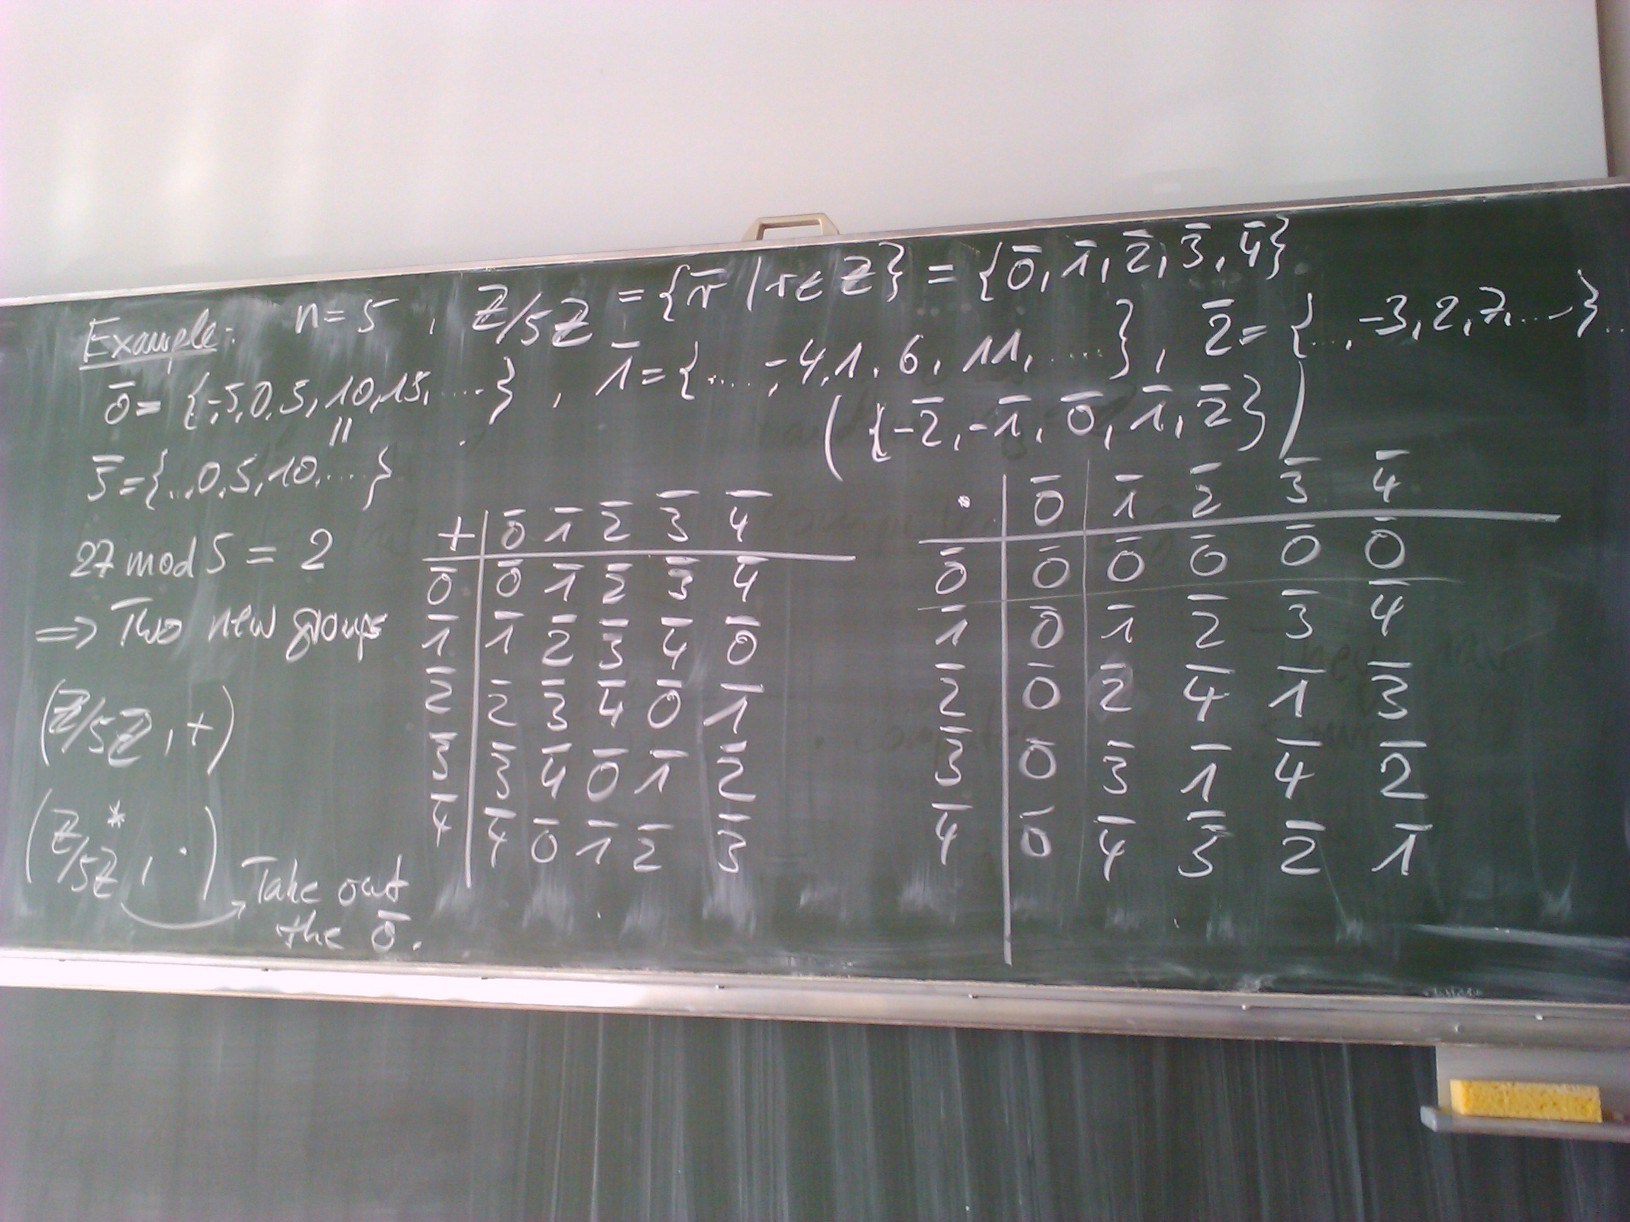 Example: n=5, Z/5Z = {r̄ | r∈Z} = {0̄, 1̄, 2̄, 3̄, 4̄}
0̄ = {-5,0,5,10,15,....}, 1̄ = {....,-4,1,6,11,....}, 2̄ = {..., -3,2,7,....}...
|| ({-2̄, -1̄, 0̄, 1̄, 2̄})
5̄ = {..,0,5,10,....}
27 mod 5 = 2
⇒ Two new groups
(Z/5Z, +)
(Z/5Z*, ·)
Take out
the 0̄.
+ 0̄ 1̄ 2̄ 3̄ 4̄
0̄ 0̄ 1̄ 2̄ 3̄ 4̄
1̄ 1̄ 2̄ 3̄ 4̄ 0̄
2̄ 2̄ 3̄ 4̄ 0̄ 1̄
3̄ 3̄ 4̄ 0̄ 1̄ 2̄
4̄ 4̄ 0̄ 1̄ 2̄ 3̄
· 0̄ 1̄ 2̄ 3̄ 4̄
0̄ 0̄ 0̄ 0̄ 0̄ 0̄
1̄ 0̄ 1̄ 2̄ 3̄ 4̄
2̄ 0̄ 2̄ 4̄ 1̄ 3̄
3̄ 0̄ 3̄ 1̄ 4̄ 2̄
4̄ 0̄ 4̄ 3̄ 2̄ 1̄